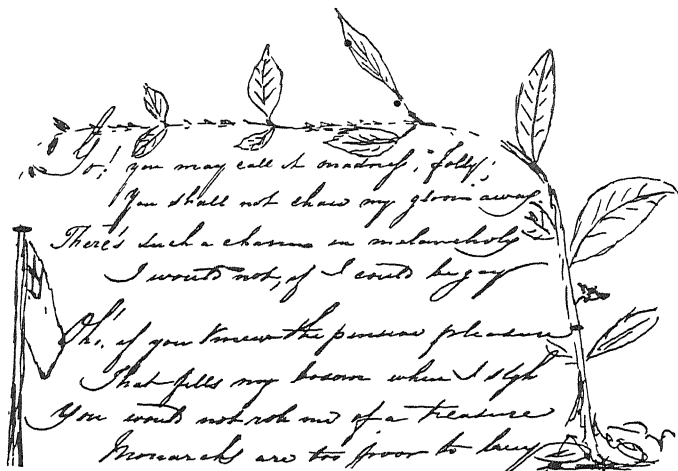 Go! you may call it madness, folly;
You shall not chase my gloom away.
There's such a charm in melancholy
I would not, if I could be gay
Oh!, if you knew the pensive pleasure
That fills my bosom when I sigh
You would not rob me of a treasure
Monarchs are too poor to buy